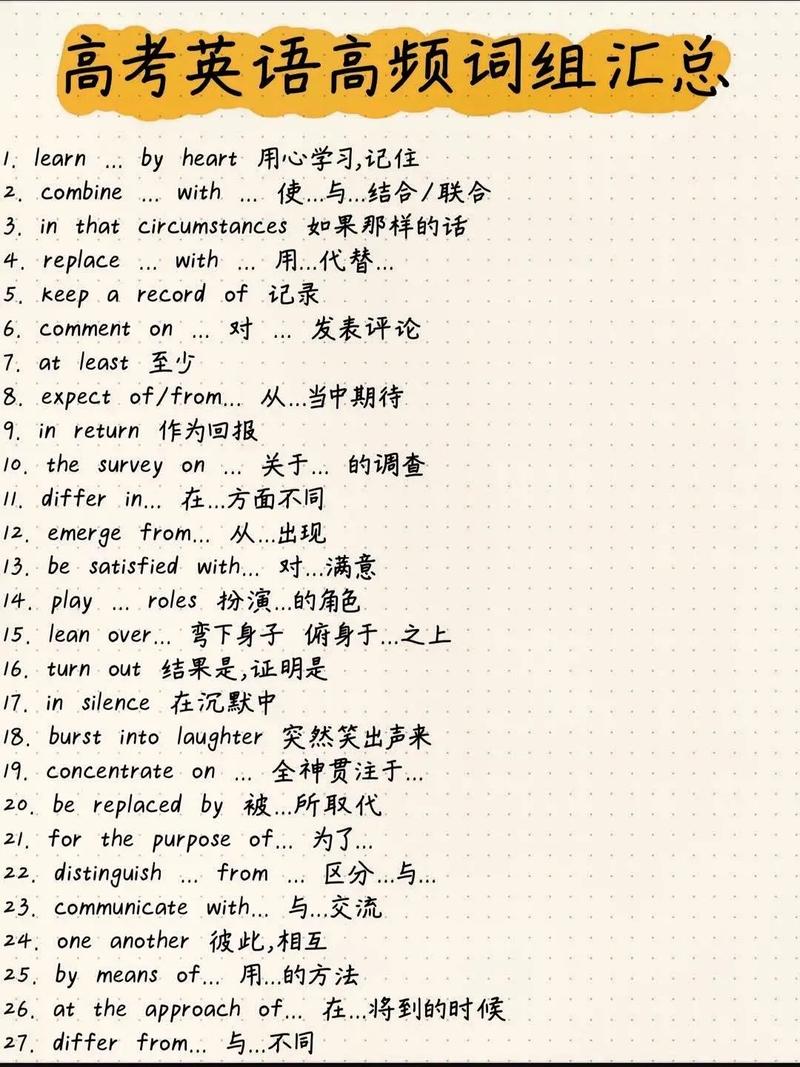 高考英语高频词组汇总
1. learn ... by heart 用心学习,记住
2. combine ... with ... 使...与...结合/联合
3. in that circumstances 如果那样的话
4. replace ... with ... 用...代替...
5. keep a record of 记录
6. comment on ... 对 ... 发表评论
7. at least 至少
8. expect of/from... 从...当中期待
9. in return 作为回报
10. the survey on ... 关于... 的调查
11. differ in... 在...方面不同
12. emerge from... 从...出现
13. be satisfied with... 对...满意
14. play ... roles 扮演...的角色
15. lean over... 弯下身子 俯身于...之上
16. turn out 结果是,证明是
17. in silence 在沉默中
18. burst into laughter 突然笑出声来
19. concentrate on ... 全神贯注于...
20. be replaced by 被...所取代
21. for the purpose of... 为了...
22. distinguish ... from ... 区分...与...
23. communicate with... 与...交流
24. one another 彼此,相互
25. by means of... 用...的方法
26. at the approach of... 在...将到的时候
27. differ from... 与...不同